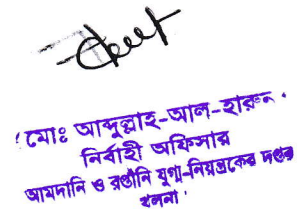 মোঃ আব্দুল্লাহ-আল-হারুন
নির্বাহী অফিসার
আমদানি ও রপ্তানি যুগ্ম-নিয়ন্ত্রকের দপ্তর
খুলনা